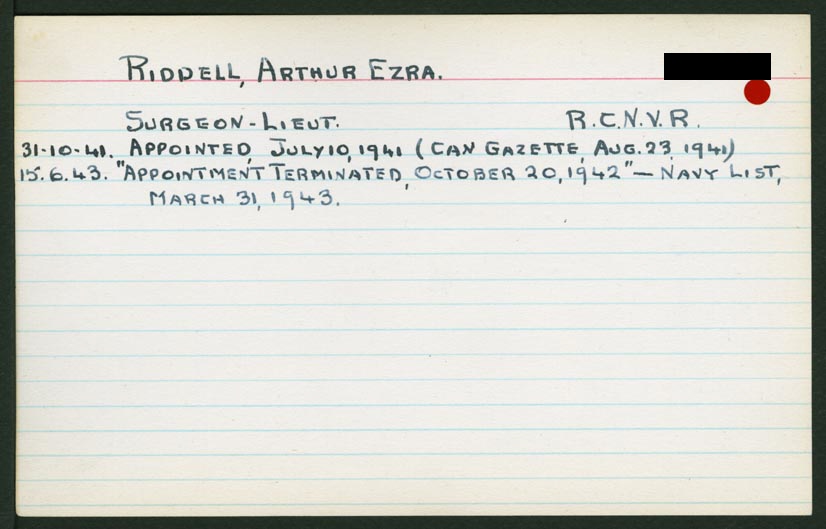 RIDDELL, ARTHUR EZRA.
SURGEON-LIEUT. R.C.N.V.R.
31-10-41. APPOINTED, JULY 10, 1941 (CAN GAZETTE, AUG. 23, 1941)
15.6.43. "APPOINTMENT TERMINATED, OCTOBER 20, 1942" — NAVY LIST,
MARCH 31, 1943.